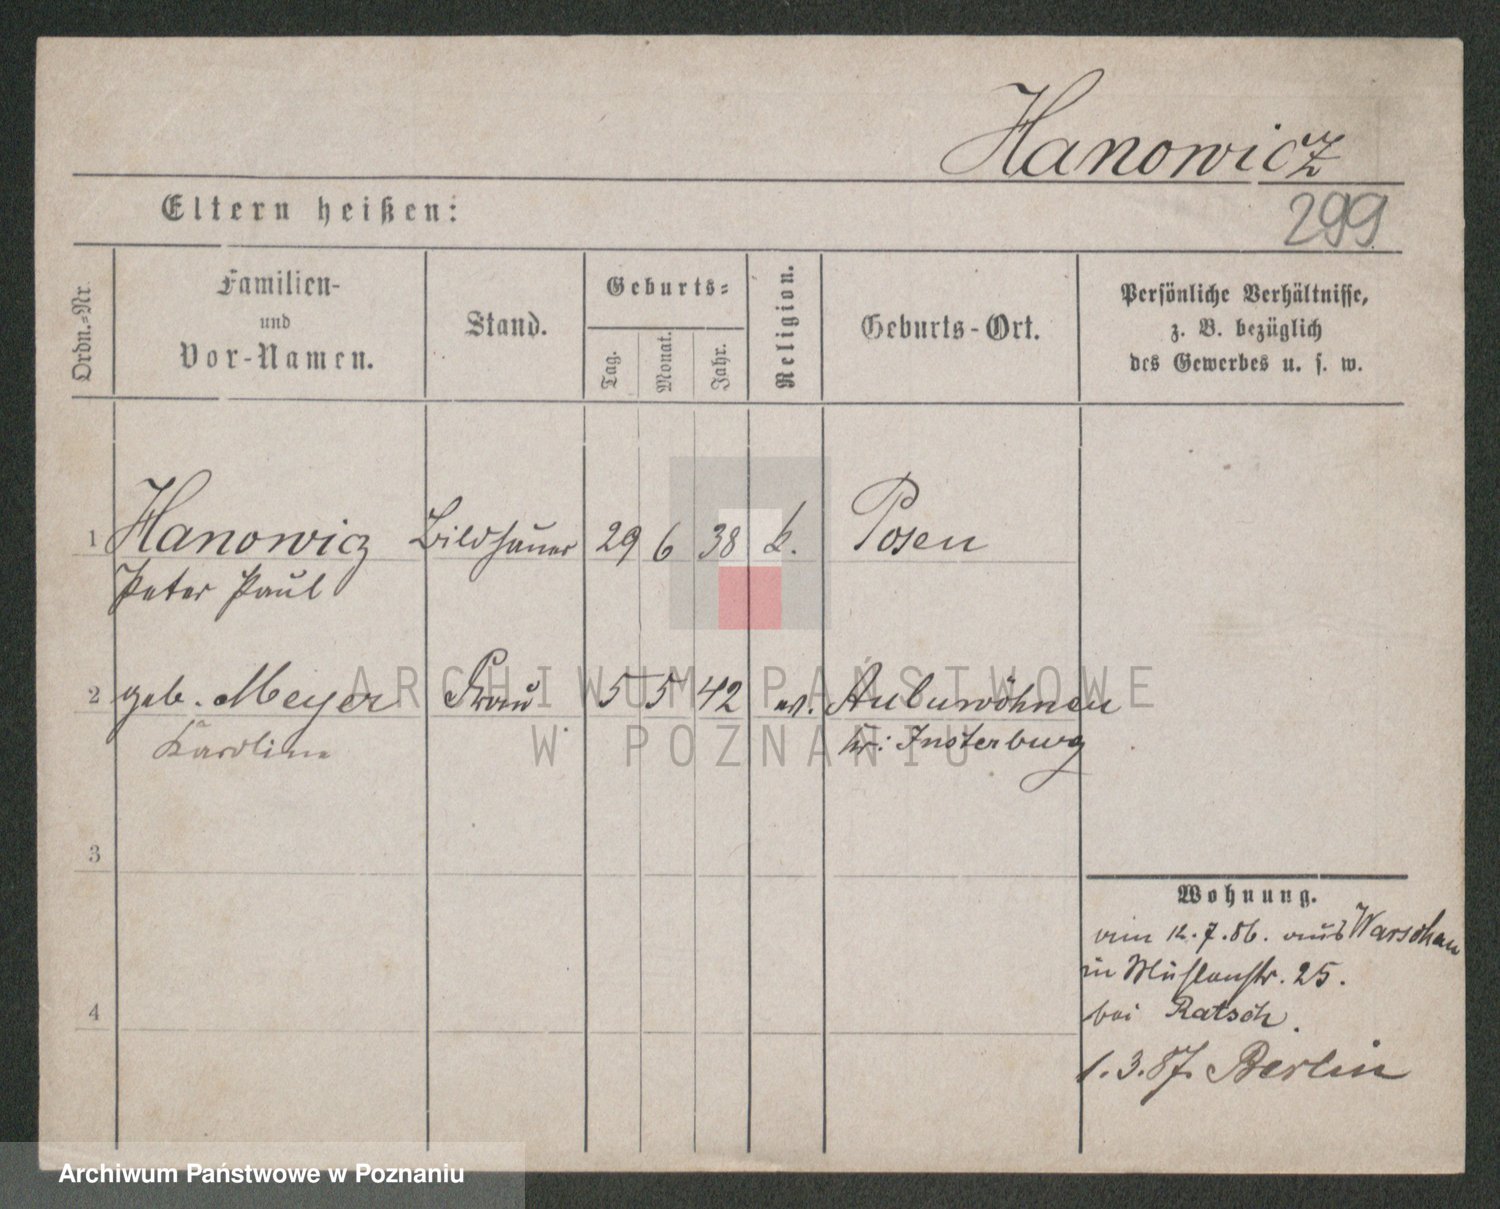 Hanowicz
299
Eltern heißen:
Ordn.-Nr.
Familien-
und
Vor-Namen.
Stand.
Geburts-
Tag.
Monat.
Jahr.
Religion.
Geburts-Ort.
Persönliche Verhältnisse,
z. B. bezüglich
des Gewerbes u. s. w.
1 Hanowicz Bildhauer 29 6 38 k. Posen
Peter Paul
2 geb. Meyer Frau 5 5 42 ev.
Karoline Kr: Insterburg
3
4
Wohnung.
12.7.86. aus Warschau
in Mühlenstr. 25.
bei Ratsch.
1.3.87. Berlin
ARCHIWUM PAŃSTWOWE
W POZNANIU
Archiwum Państwowe w Poznaniu